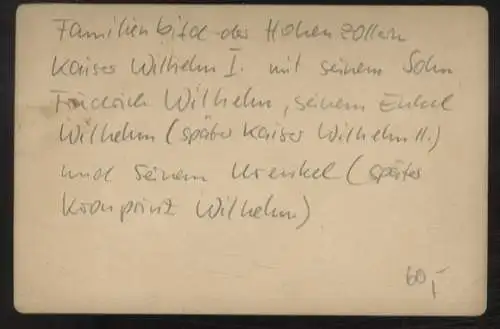 Familienbild der Hohenzollern
Kaiser Wilhelm I. mit seinem Sohn
Friedrich Wilhelm, seinem Enkel
Wilhelm (später Kaiser Wilhelm II.)
und seinem Urenkel (später
Kronprinz Wilhelm)
60,-